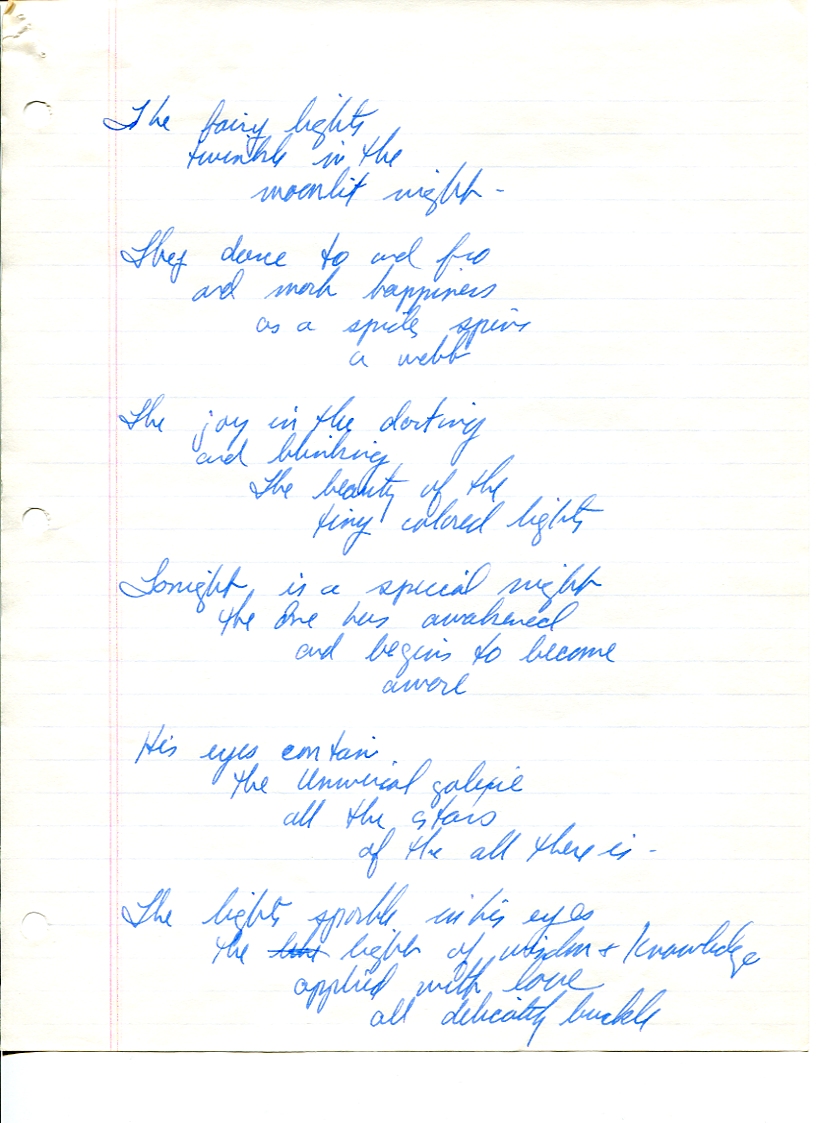 The fairy lights
twinkle in the
moonlit night -
They dance to and fro
and mark happiness
as a spider spins
a webb
The joy in the darting
and blinking
The beauty of the
tiny colored lights
Tonight is a special night
the One has awakened
and begins to become
aware
His eyes contain
the Universal galaxie
all the stars
of the all there is -
The lights sparkle in his eyes
the light of wisdom + knowledge
applied with love
all delicatly